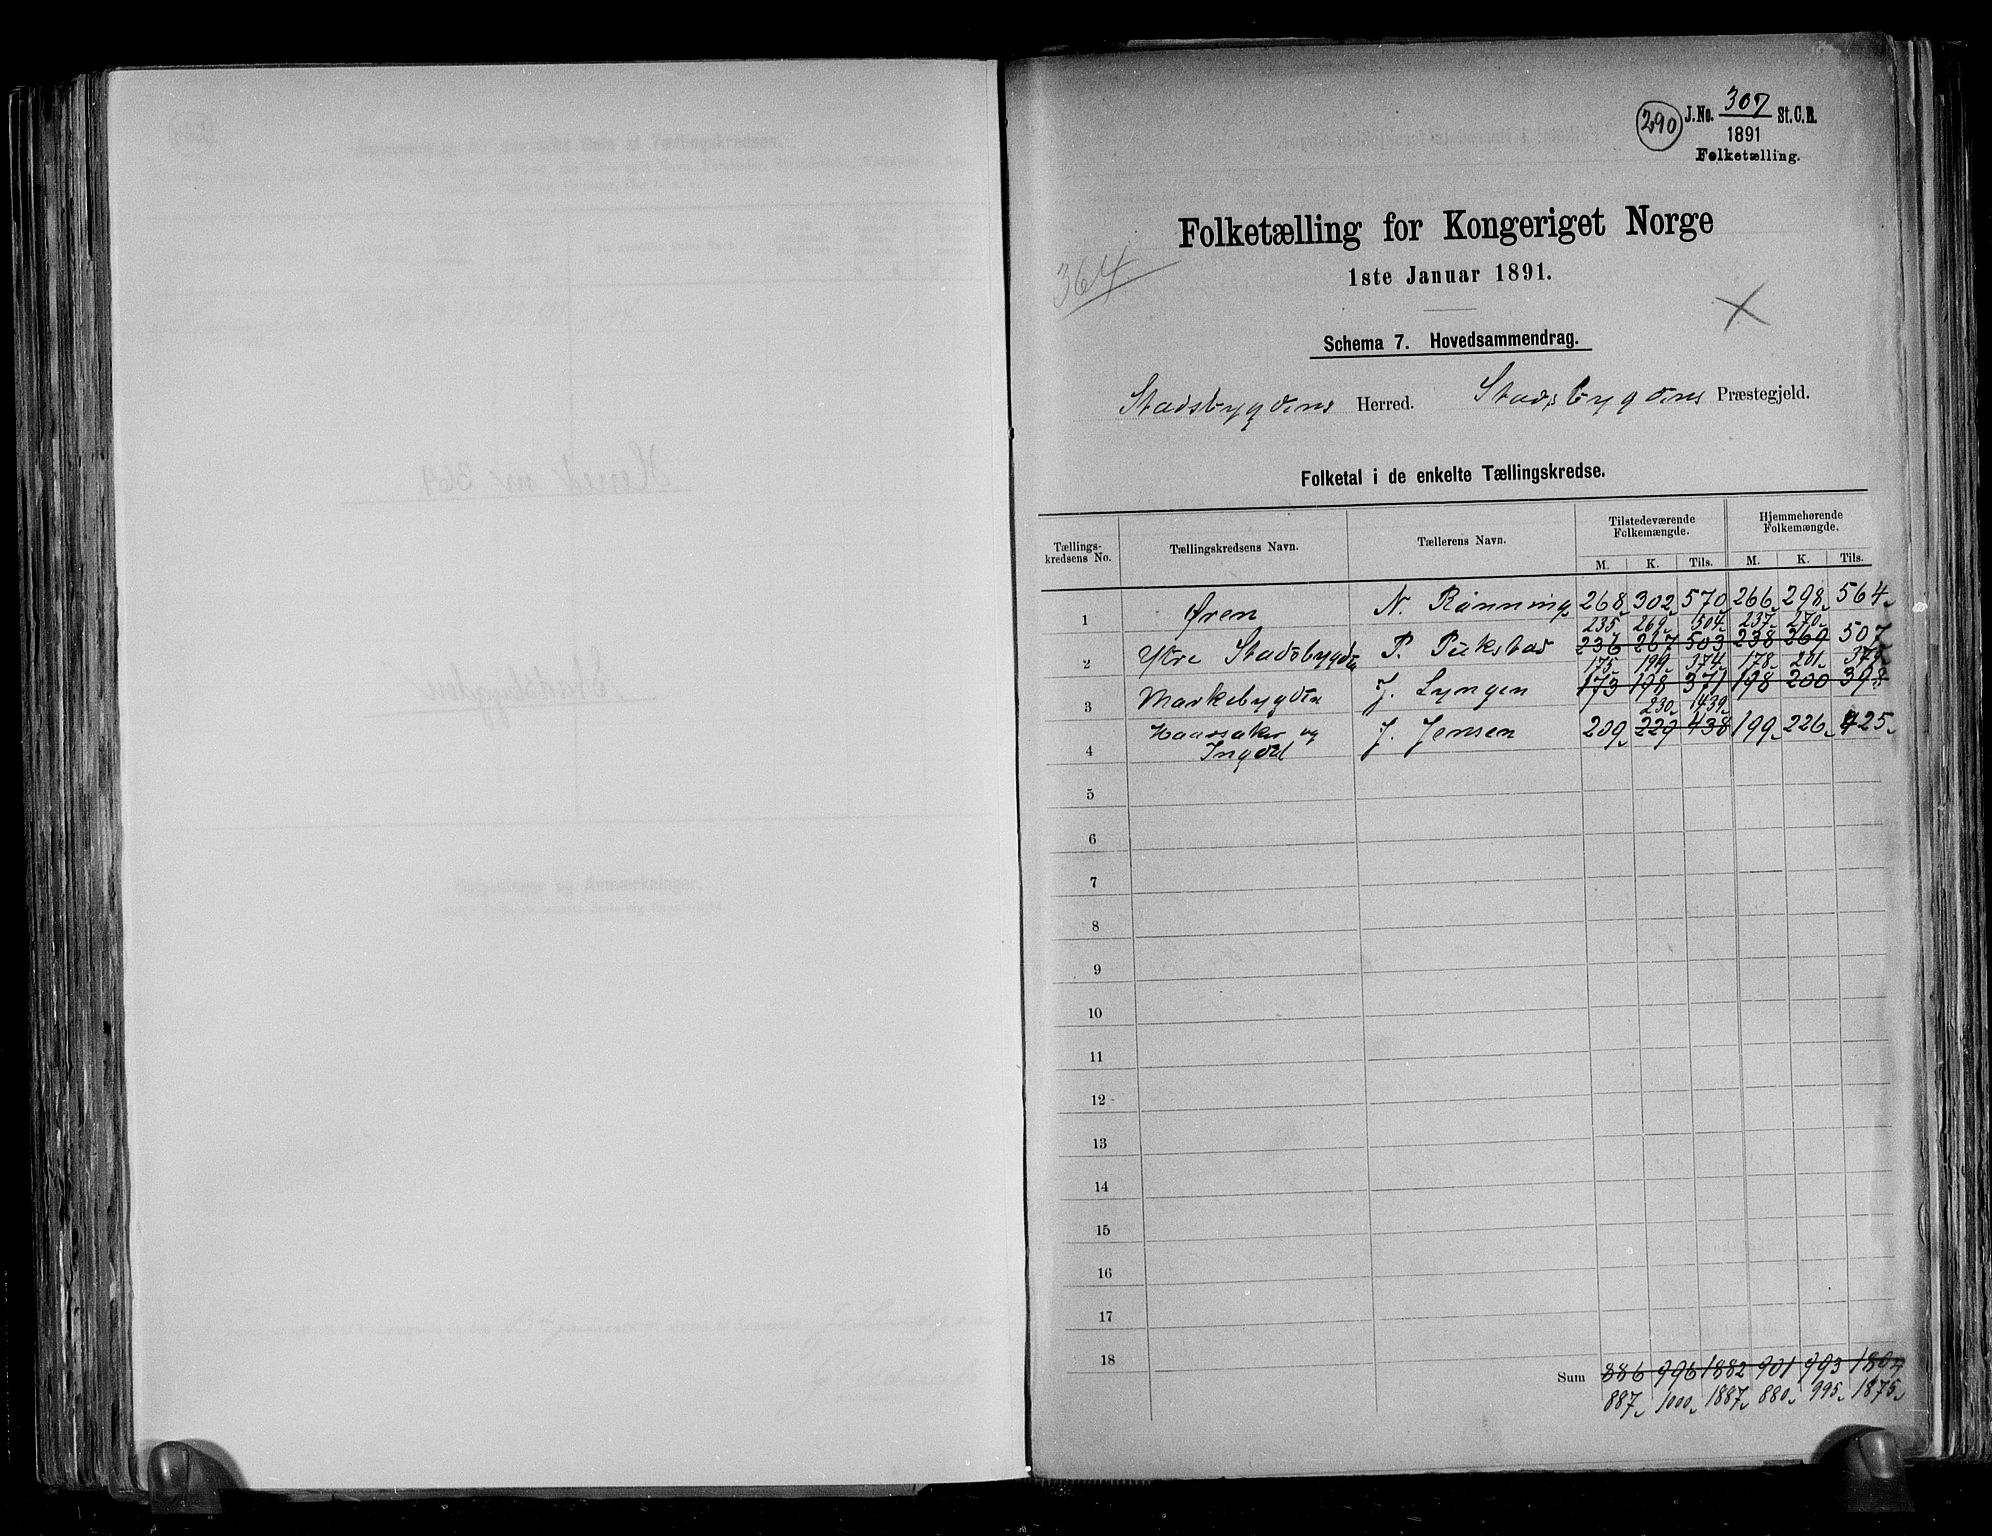 290 J.No. 307 St.C.B.
1891
Folketælling.
Folketælling for Kongeriget Norge
364
1ste Januar 1891.
Schema 7. Hovedsammendrag.
Stadsbygdens Herred. Stadsbygdens Præstegjeld.
Folketal i de enkelte Tællingskredse.
Tællingskredsens No. Tællingskredsens Navn. Tællerens Navn. Tilstedeværende Folkemængde. Hjemmehørende Folkemængde.
M. K. Tils. M. K. Tils.
1 Øren N. Rønning 268 302 570 266 298 564
235 269 504 237 270
2 Ytre Stadsbygden P. 236 267 503 238 269 507
175 199 374 178 201 379
3 Markebygden J. Lyngen 173 198 371 198 200 398
230 439
4 og Ingdal J. Jensen 209 229 438 199 226 425
5
6
7
8
9
10
11
12
13
14
15
16
17
18
Sum 886 996 1882 901 993 1894
887 1000 1887 880 995 1875
Herred nr 364
Stadsbygden